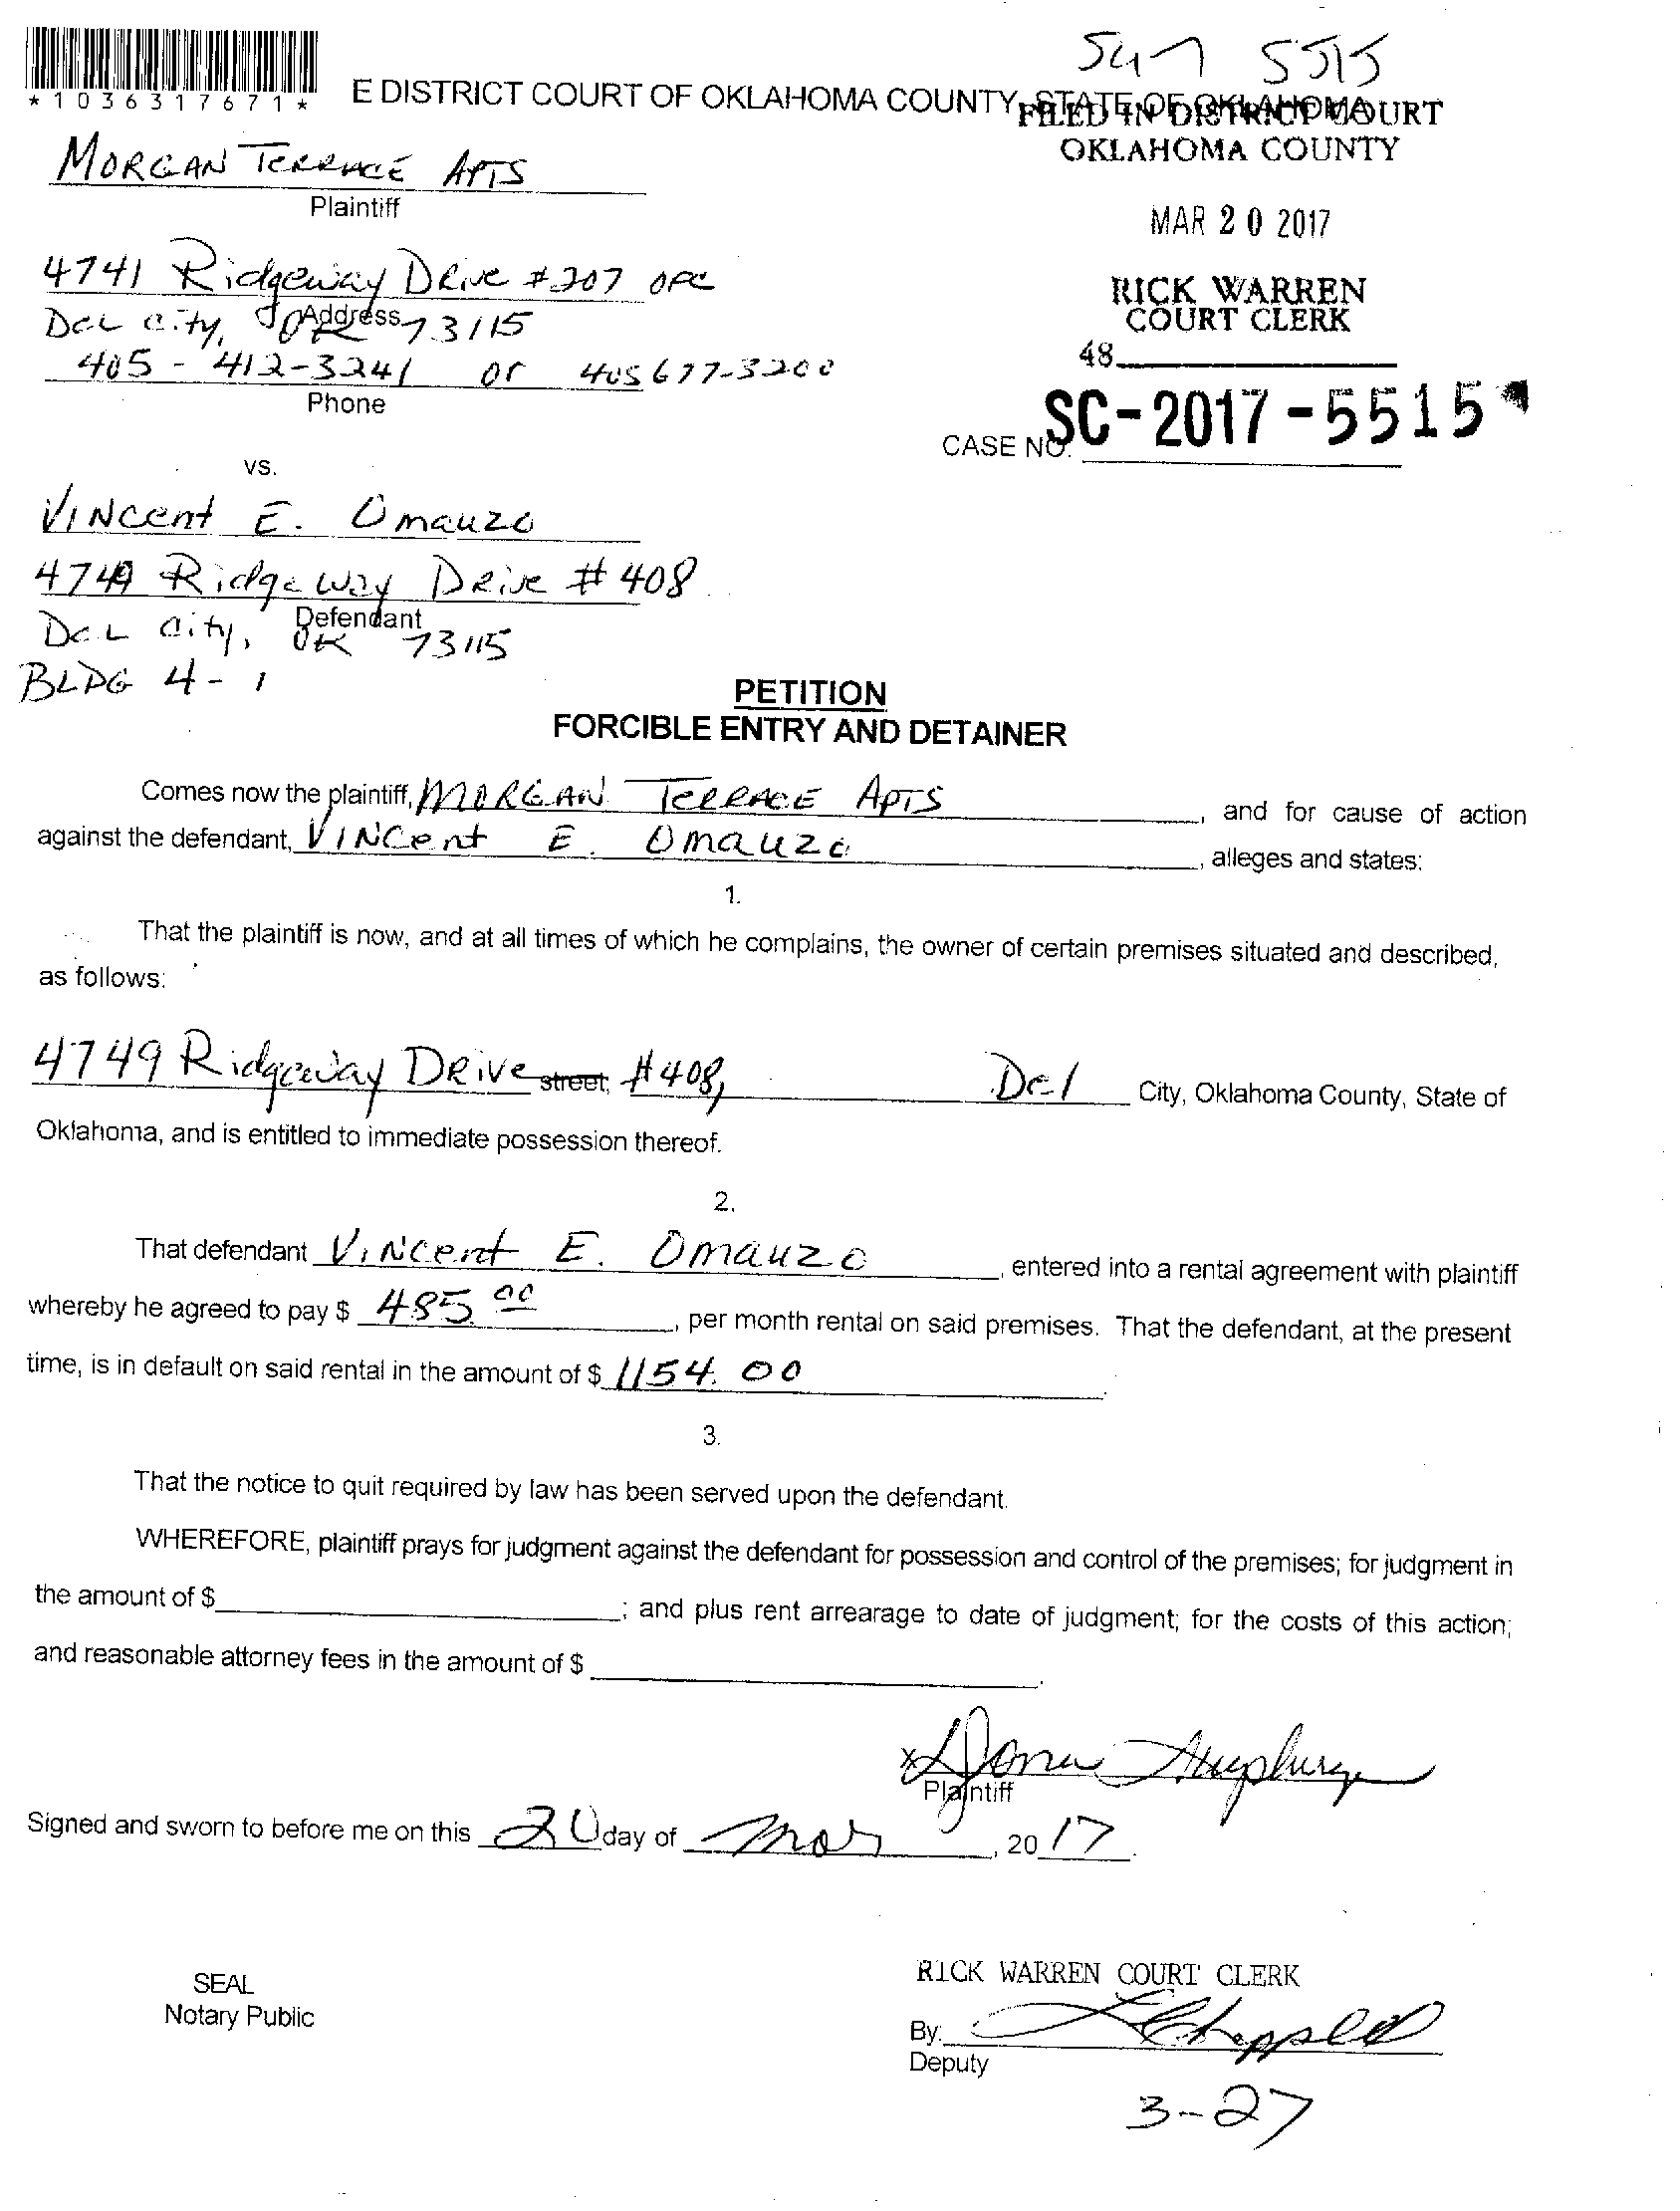 547 5515
*1036317671*
E DISTRICT COURT OF OKLAHOMA COUNTY, STATE OF OKLAHOMA
FILED IN DISTRICT COURT
OKLAHOMA COUNTY
MORGAN TERRACE APTS
Plaintiff
MAR 20 2017
4741 Ridgeway DRive #207 OFC
Address
Del City, OK 73115
RICK WARREN
COURT CLERK
405-412-3241 or 405 677-3200
Phone
48
CASE NO. SC-2017-5515
vs.
VINcent E. Omauzo
4749 Ridgeway DRive #408
Defendant
Del City, OK 73115
BLDG 4-1
PETITION
FORCIBLE ENTRY AND DETAINER
Comes now the plaintiff, MORGAN TERRACE APTS, and for cause of action
against the defendant, VINCent E. Omauzo, alleges and states:
1.
That the plaintiff is now, and at all times of which he complains, the owner of certain premises situated and described,
as follows:
4749 Ridgeway DRive street; #408, Del City, Oklahoma County, State of
Oklahoma, and is entitled to immediate possession thereof.
2.
That defendant VINCent E. Omauzo, entered into a rental agreement with plaintiff
whereby he agreed to pay $ 485.00, per month rental on said premises. That the defendant, at the present
time, is in default on said rental in the amount of $ 1154.00.
3.
That the notice to quit required by law has been served upon the defendant.
WHEREFORE, plaintiff prays for judgment against the defendant for possession and control of the premises; for judgment in
the amount of $; and plus rent arrearage to date of judgment; for the costs of this action;
and reasonable attorney fees in the amount of $.
x
Plaintiff
Signed and sworn to before me on this 20 day of Mar, 2017.
RICK WARREN COURT CLERK
SEAL
Notary Public
By:
Deputy
3-27